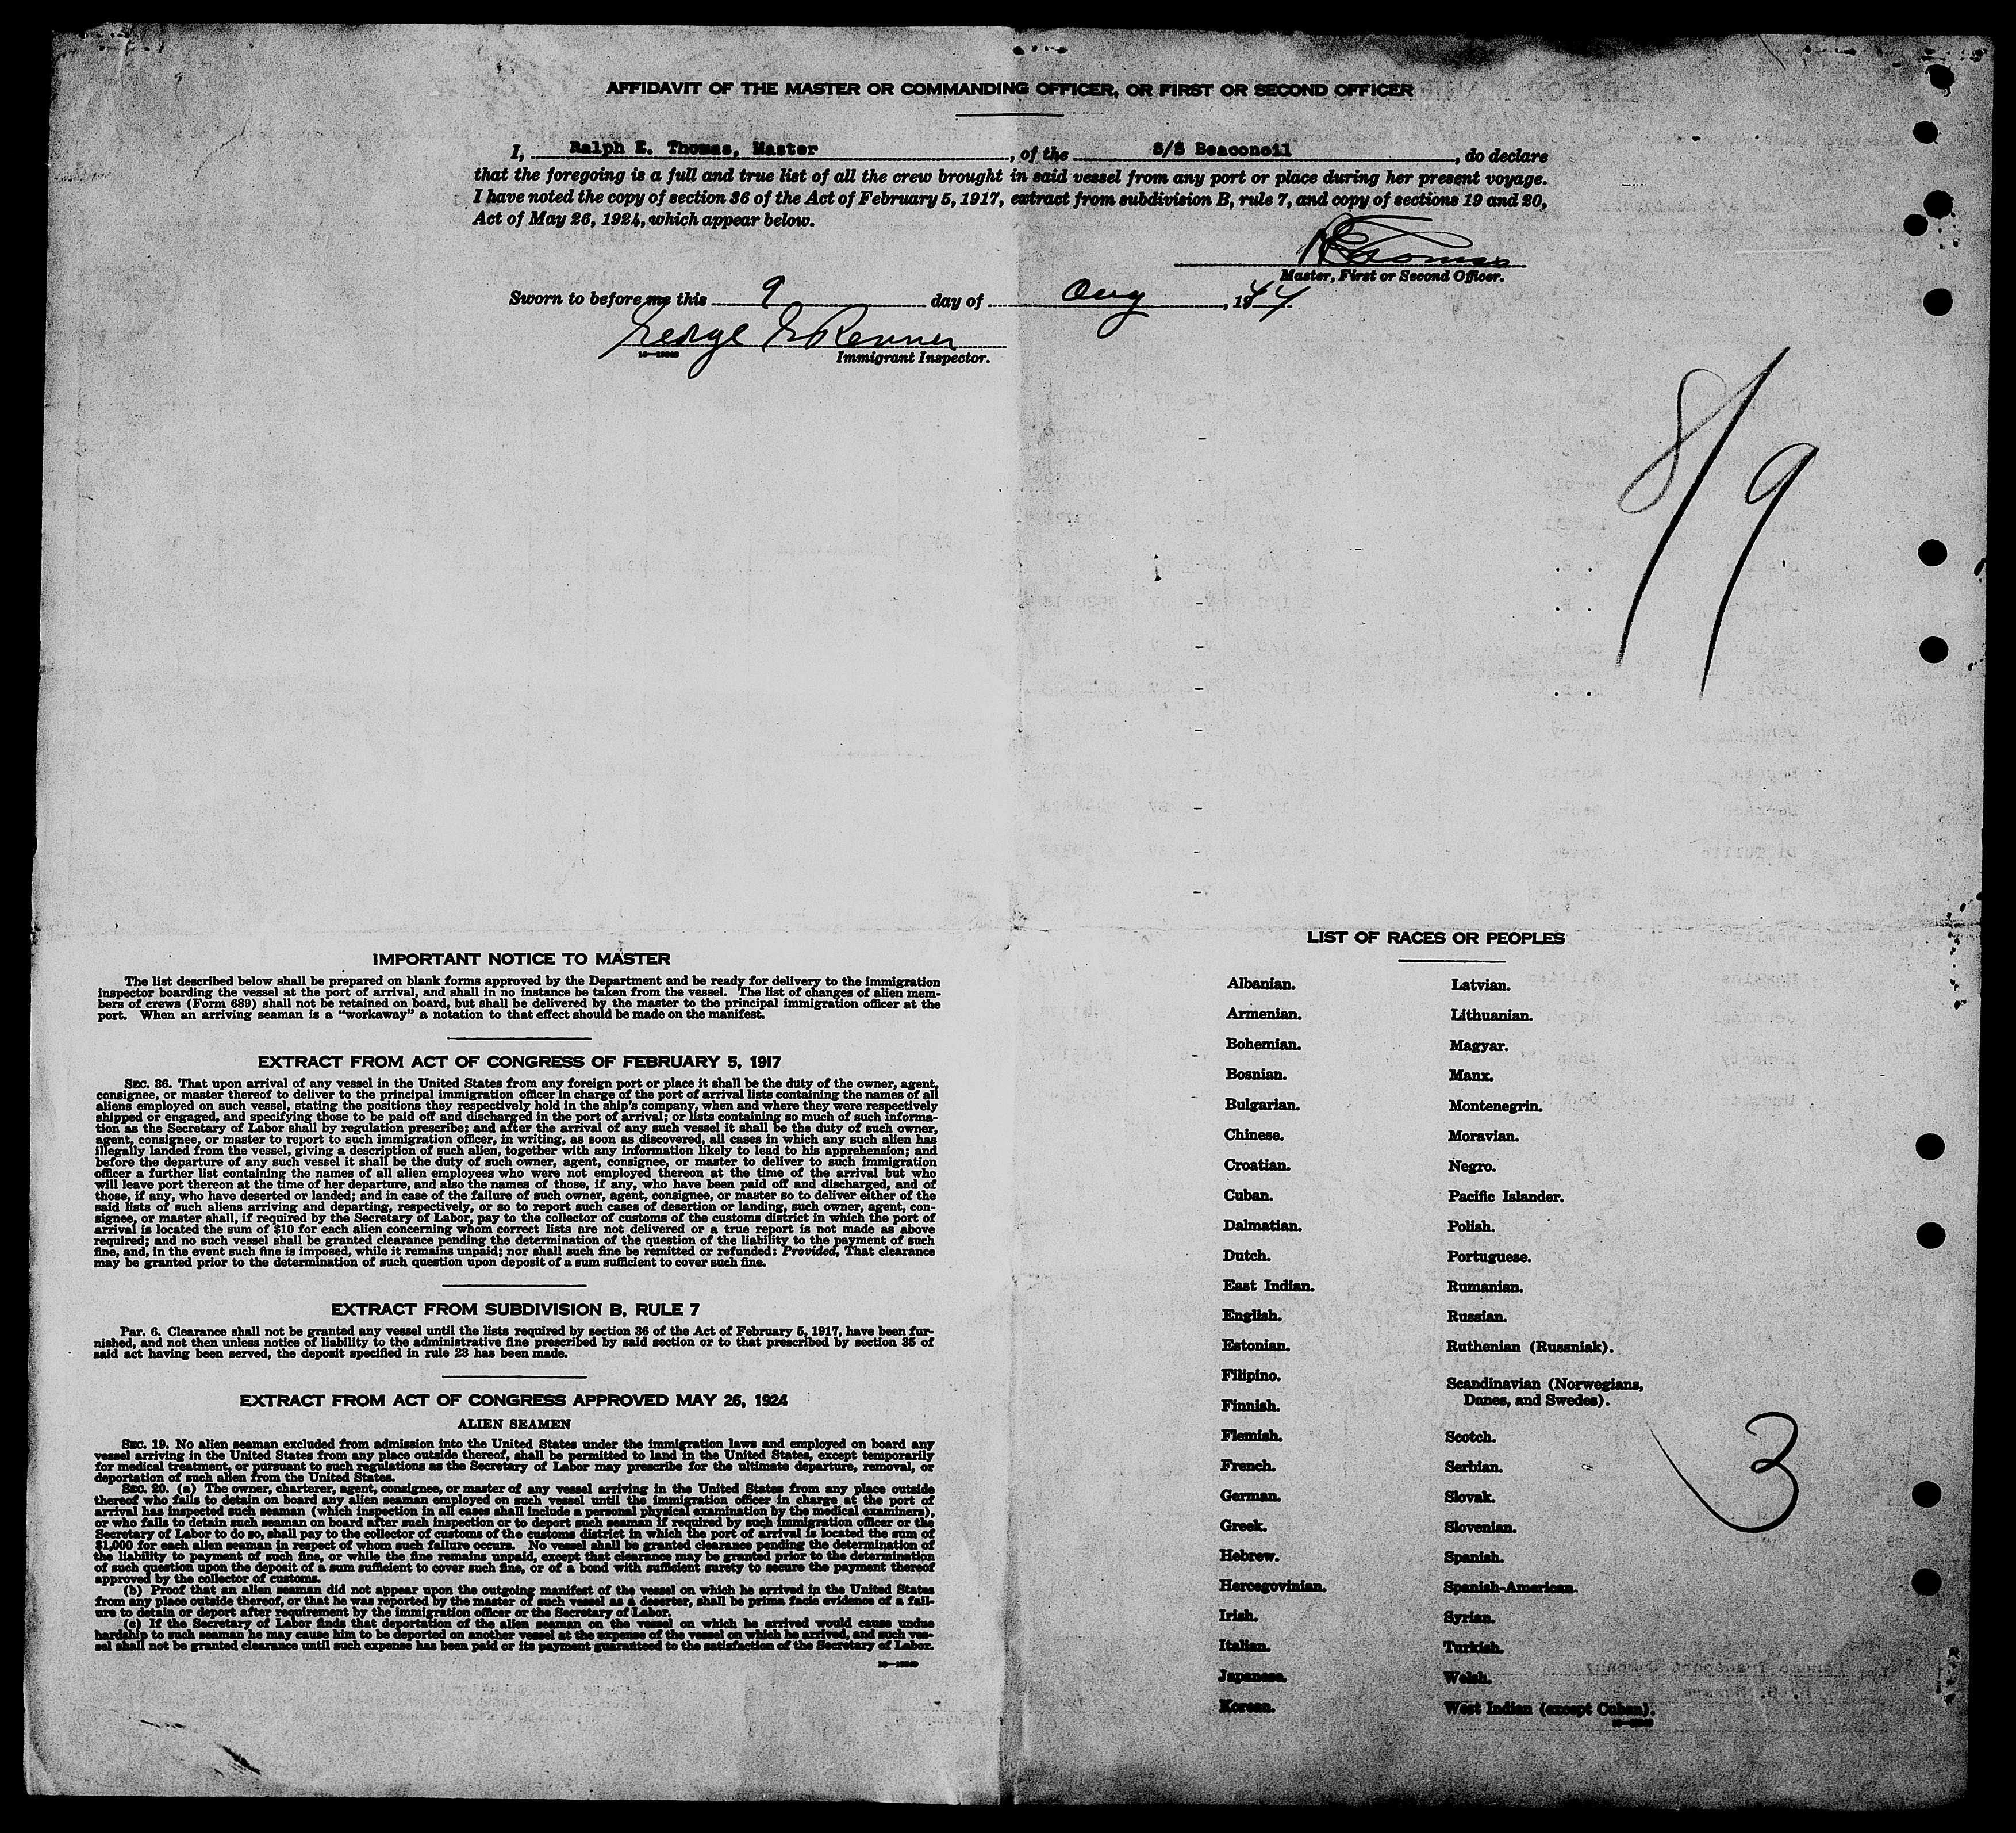 AFFIDAVIT OF THE MASTER OR COMMANDING OFFICER, OR FIRST OR SECOND OFFICER
I, Ralph E. Thomas, Master, of the S/S Beaconoil, do declare
that the foregoing is a full and true list of all the crew brought in said vessel from any port or place during her present voyage.
I have noted the copy of section 36 of the Act of February 5, 1917, extract from subdivision B, rule 7, and copy of sections 19 and 20,
Act of May 26, 1924, which appear below.
Master, First or Second Officer.
Sworn to before me this 9 day of Aug, 1944
George Renner
16—19049 Immigrant Inspector.
8/9
IMPORTANT NOTICE TO MASTER
The list described below shall be prepared on blank forms approved by the Department and be ready for delivery to the immigration
inspector boarding the vessel at the port of arrival, and shall in no instance be taken from the vessel. The list of changes of alien mem-
bers of crews (Form 689) shall not be retained on board, but shall be delivered by the master to the principal immigration officer at the
port. When an arriving seaman is a "workaway" a notation to that effect should be made on the manifest.
EXTRACT FROM ACT OF CONGRESS OF FEBRUARY 5, 1917
SEC. 36. That upon arrival of any vessel in the United States from any foreign port or place it shall be the duty of the owner, agent,
consignee, or master thereof to deliver to the principal immigration officer in charge of the port of arrival lists containing the names of all
aliens employed on such vessel, stating the positions they respectively hold in the ship's company, when and where they were respectively
shipped or engaged, and specifying those to be paid off and discharged in the port of arrival; or lists containing so much of such informa-
tion as the Secretary of Labor shall by regulation prescribe; and after the arrival of any such vessel it shall be the duty of such owner,
agent, consignee, or master to report to such immigration officer, in writing, as soon as discovered, all cases in which any such alien has
illegally landed from the vessel, giving a description of such alien, together with any information likely to lead to his apprehension; and
before the departure of any such vessel it shall be the duty of such owner, agent, consignee, or master to deliver to such immigration
officer a further list containing the names of all alien employees who were not employed thereon at the time of the arrival but who
will leave port thereon at the time of her departure, and also the names of those, if any, who have been paid off and discharged, and of
those, if any, who have deserted or landed; and in case of the failure of such owner, agent, consignee, or master so to deliver either of the
said lists of such aliens arriving and departing, respectively, or so to report such cases of desertion or landing, such owner, agent, con-
signee, or master shall, if required by the Secretary of Labor, pay to the collector of customs of the customs district in which the port of
arrival is located the sum of $10 for each alien concerning whom correct lists are not delivered or a true report is not made as above
required; and no such vessel shall be granted clearance pending the determination of the question of the liability to the payment of such
fine, and, in the event such fine is imposed, while it remains unpaid; nor shall such fine be remitted or refunded: Provided, That clearance
may be granted prior to the determination of such question upon deposit of a sum sufficient to cover such fine.
EXTRACT FROM SUBDIVISION B, RULE 7
Par. 6. Clearance shall not be granted any vessel until the lists required by section 36 of the Act of February 5, 1917, have been fur-
nished, and not then unless notice of liability to the administrative fine prescribed by said section or to that prescribed by section 35 of
said act having been served, the deposit specified in rule 23 has been made.
EXTRACT FROM ACT OF CONGRESS APPROVED MAY 26, 1924
ALIEN SEAMEN
SEC. 19. No alien seaman excluded from admission into the United States under the immigration laws and employed on board any
vessel arriving in the United States from any place outside thereof, shall be permitted to land in the United States, except temporarily
for medical treatment, or pursuant to such regulations as the Secretary of Labor may prescribe for the ultimate departure, removal, or
deportation of such alien from the United States.
SEC. 20. (a) The owner, charterer, agent, consignee, or master of any vessel arriving in the United States from any place outside
thereof who fails to detain on board any alien seaman employed on such vessel until the immigration officer in charge at the port of
arrival has inspected such seaman (which inspection in all cases shall include a personal physical examination by the medical examiners),
or who fails to detain such seaman on board after such inspection or to deport such seaman if required by such immigration officer or the
Secretary of Labor to do so, shall pay to the collector of customs of the customs district in which the port of arrival is located the sum of
$1,000 for each alien seaman in respect of whom such failure occurs. No vessel shall be granted clearance pending the determination of
the liability to payment of such fine, or while the fine remains unpaid, except that clearance may be granted prior to the determination
of such question upon the deposit of a sum sufficient to cover such fine, or of a bond with sufficient surety to secure the payment thereof
approved by the collector of customs.
(b) Proof that an alien seaman did not appear upon the outgoing manifest of the vessel on which he arrived in the United States
from any place outside thereof, or that he was reported by the master of such vessel as a deserter, shall be prima facie evidence of a fail-
ure to detain or deport after requirement by the immigration officer or the Secretary of Labor.
(c) If the Secretary of Labor finds that deportation of the alien seaman on the vessel on which he arrived would cause undue
hardship to such seaman he may cause him to be deported on another vessel at the expense of the vessel on which he arrived, and such ves-
sel shall not be granted clearance until such expense has been paid or its payment guaranteed to the satisfaction of the Secretary of Labor.
16—19049
LIST OF RACES OR PEOPLES
Albanian.
Armenian.
Bohemian.
Bosnian.
Bulgarian.
Chinese.
Croatian.
Cuban.
Dalmatian.
Dutch.
East Indian.
English.
Estonian.
Filipino.
Finnish.
Flemish.
French.
German.
Greek.
Hebrew.
Hercegovinian.
Irish.
Italian.
Japanese.
Korean.
Latvian.
Lithuanian.
Magyar.
Manx.
Montenegrin.
Moravian.
Negro.
Pacific Islander.
Polish.
Portuguese.
Rumanian.
Russian.
Ruthenian (Russniak).
Scandinavian (Norwegians,
Danes, and Swedes).
Scotch.
Serbian.
Slovak.
Slovenian.
Spanish.
Spanish-American.
Syrian.
Turkish.
Welsh.
West Indian (except Cuban).
3